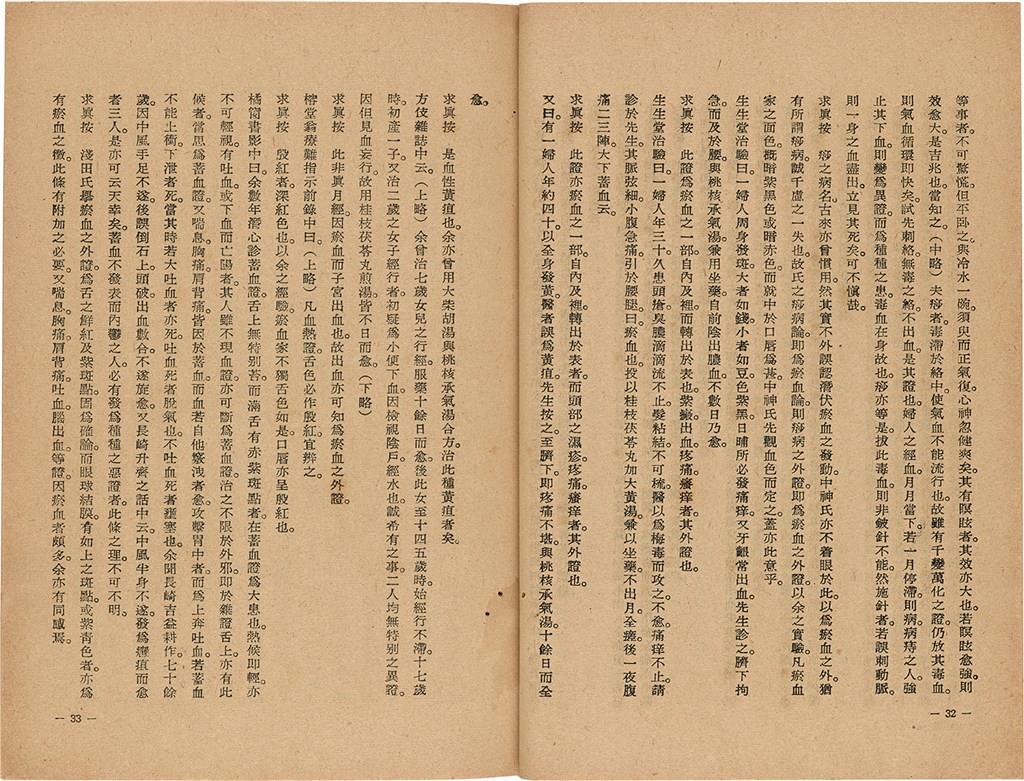 等事者。不可驚慌。但平臥之。與冷水一碗。須臾而正氣復。心神忽健爽矣。其有瞑眩者。其效亦大也。若瞑眩愈強。則
效愈大。是吉兆也。當知之。(中略)夫痧者。毒滯於絡中。使氣血不能流行也。故雖有千變萬化之證。仍放其毒血。
則氣血循環即快矣。試先刺絡。無毒之絡不出血。是其證也。婦人之經血。月月當下。若一月停滯。則病病痔之人。強
止其下血。則變爲異證。而爲種種之患。毒血在身故也。痧亦等是。拔此毒血。則非鈹針不能。然施針者。若誤刺動脈。
則一身之血盡出。立見其死矣。可不愼哉。
求眞按 痧之病名。古來亦會慣用。然其實不外誤認潛伏瘀血之發動。中神氏亦不着眼於此。以爲瘀血之外。猶
有所謂痧病。誠千慮之一失也。故氏之痧病論。即爲瘀血論。則痧病之外證。即爲瘀血之外證。以余之實驗。凡瘀血
家之面色。概暗紫黑色或暗赤色。而就中於口唇爲甚。中神氏先觀血色而定之。蓋亦此意乎。
生生堂治驗曰。一婦人周身發斑。大者如錢。小者如豆。色紫黑。日晡所必發痛痒。又牙齦常出血。先生診之。臍下拘
急。而及於腰。與桃核承氣湯。兼用坐藥。自前陰出膿血。不數日乃愈。
求眞按 此證爲瘀血之一部。自內及裡而轉出於表也。紫斑。出血。疼痛。癢痒者。其外證也。
生生堂治驗曰。一婦人年三十。久患頭瘡。臭膿滴滴流不止。髮粘結。不可梳。醫以爲梅毒而攻之。不愈。痛痒不止。請
診於先生。其脈弦細。小腹急痛。引於腰腿。曰。瘀血也。投以桂枝茯苓丸加大黃湯。兼以坐藥。不出月全瘥。後一夜腹
痛二三陣。大下蓄血云。
求眞按 此證亦瘀血之一部。自內及裡轉出於表者。而頭部之濕疹疼痛癢痒者。其外證也。
又曰。有一婦人年約四十。以全身發黃。醫者誤爲黃疸。先生按之。至臍下即疼痛不堪。與桃核承氣湯。十餘日而全
— 32 —
愈。
求眞按 是血性黃疸也。余亦曾用大柴胡湯與桃核承氣湯合方。治此種黃疸者矣。
方伎雜誌中云。(上略)余曾治七歲女兒之行經。服藥十餘日而愈。後此女至十四五歲時。始經行不滯。十七歲
時。初產一子。又治二歲之女子經行者。初疑爲小便下血。因檢視陰戶。經水也。誠希有之事。二人均無特別之異證。
因但見血妄行。故用桂枝茯苓丸煎湯。皆不日而愈。(下略)
求眞按 此非眞月經。因瘀血而子宮出血也。故出血亦可知爲瘀血之外證。
榕堂翁療難指示前錄中曰。(上略)凡血熱證。舌色必作殷紅。宜辨之。
求眞按 殷紅者。深紅色也。以余之經驗。瘀血家不獨舌色如是。口唇亦呈殷紅也。
橘窗書影中曰。余數年潛心診蓄血證。舌上無特別苔。而滿舌有赤紫斑點者。在蓄血證爲大患也。熱候即輕。亦
不可輕視。有吐血或下血而亡陽者。其人雖不現血證。亦可斷爲蓄血證治之。不限於外邪。即於雜證。舌上亦有此
候者。當思爲蓄血證。又喘息。胸痛肩背痛。皆因於蓄血。而血若自他竅洩者愈。攻擊胃中者。而爲上奔吐血。若蓄血
不能上衝下泄者死。當其時。若大吐血者亦死。吐血死者。脫氣也。不吐血死者。壅塞也。余聞長崎吉益耕作。七十餘
歲。因中風手足不遂。後誤倒石上。頭破出血數合。不遂旋愈。又長崎升齊之話中云。中風半身不遂。發爲癲疽而愈
者三人。是亦可云天幸矣。蓄血不發表而內鬱之人。必有發爲種種之惡證者。此條之理。不可不明。
求眞按 淺田氏擧瘀血之外證。爲舌之鮮紅及紫斑點。固爲確論。而眼球結膜。有如上之斑點或紫靑色者。亦爲
有瘀血之徵。此條有附加之必要。又喘息。胸痛。肩背痛。吐血。腦出血。等證。因瘀血者頗多。余亦有同感焉。
— 33 —